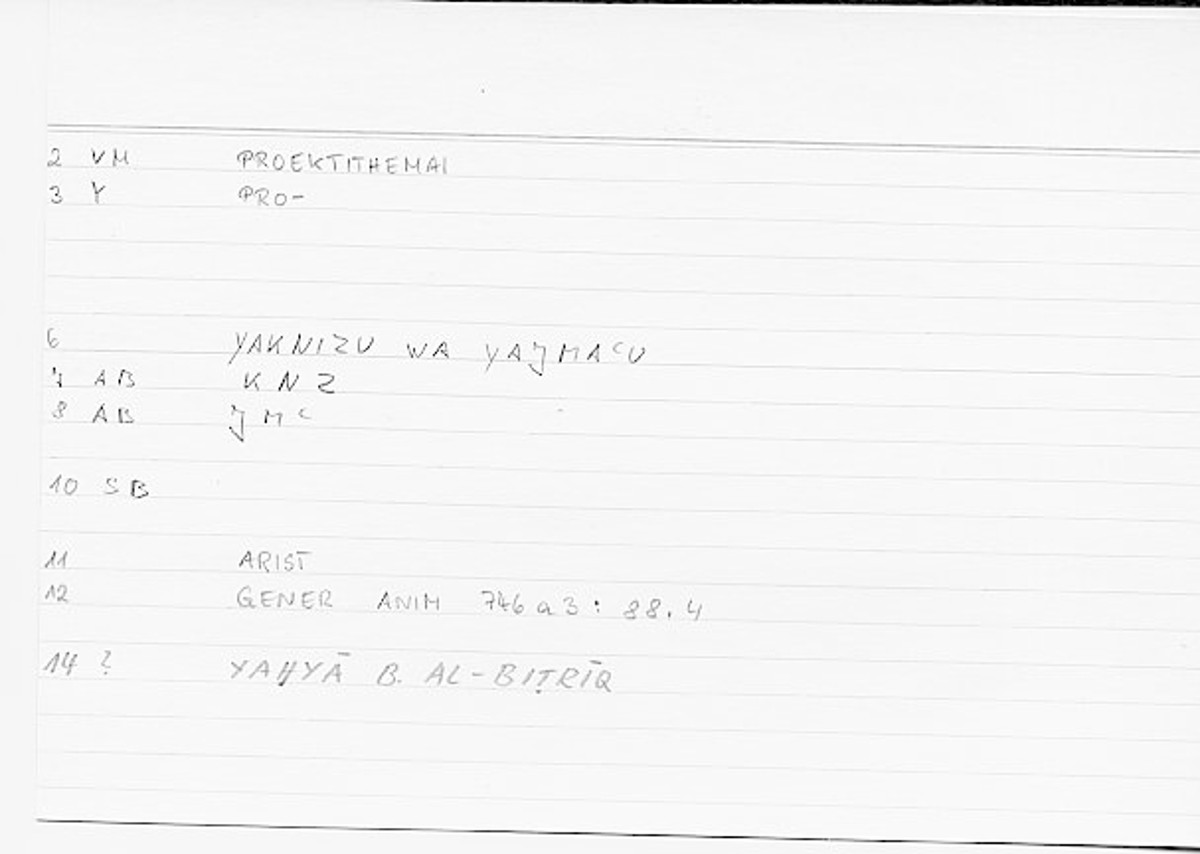 2 VM PROEKTITHEMAI
3 Y PRO-
6 YAKNIZU WA YAJMAᶜU
7 AB KNZ
8 AB JMᶜ
10 SB
11 ARIST
12 GENER ANIM 746a3: 88.4
14 ? YAḤYĀ B. AL-BIṬRĪQ